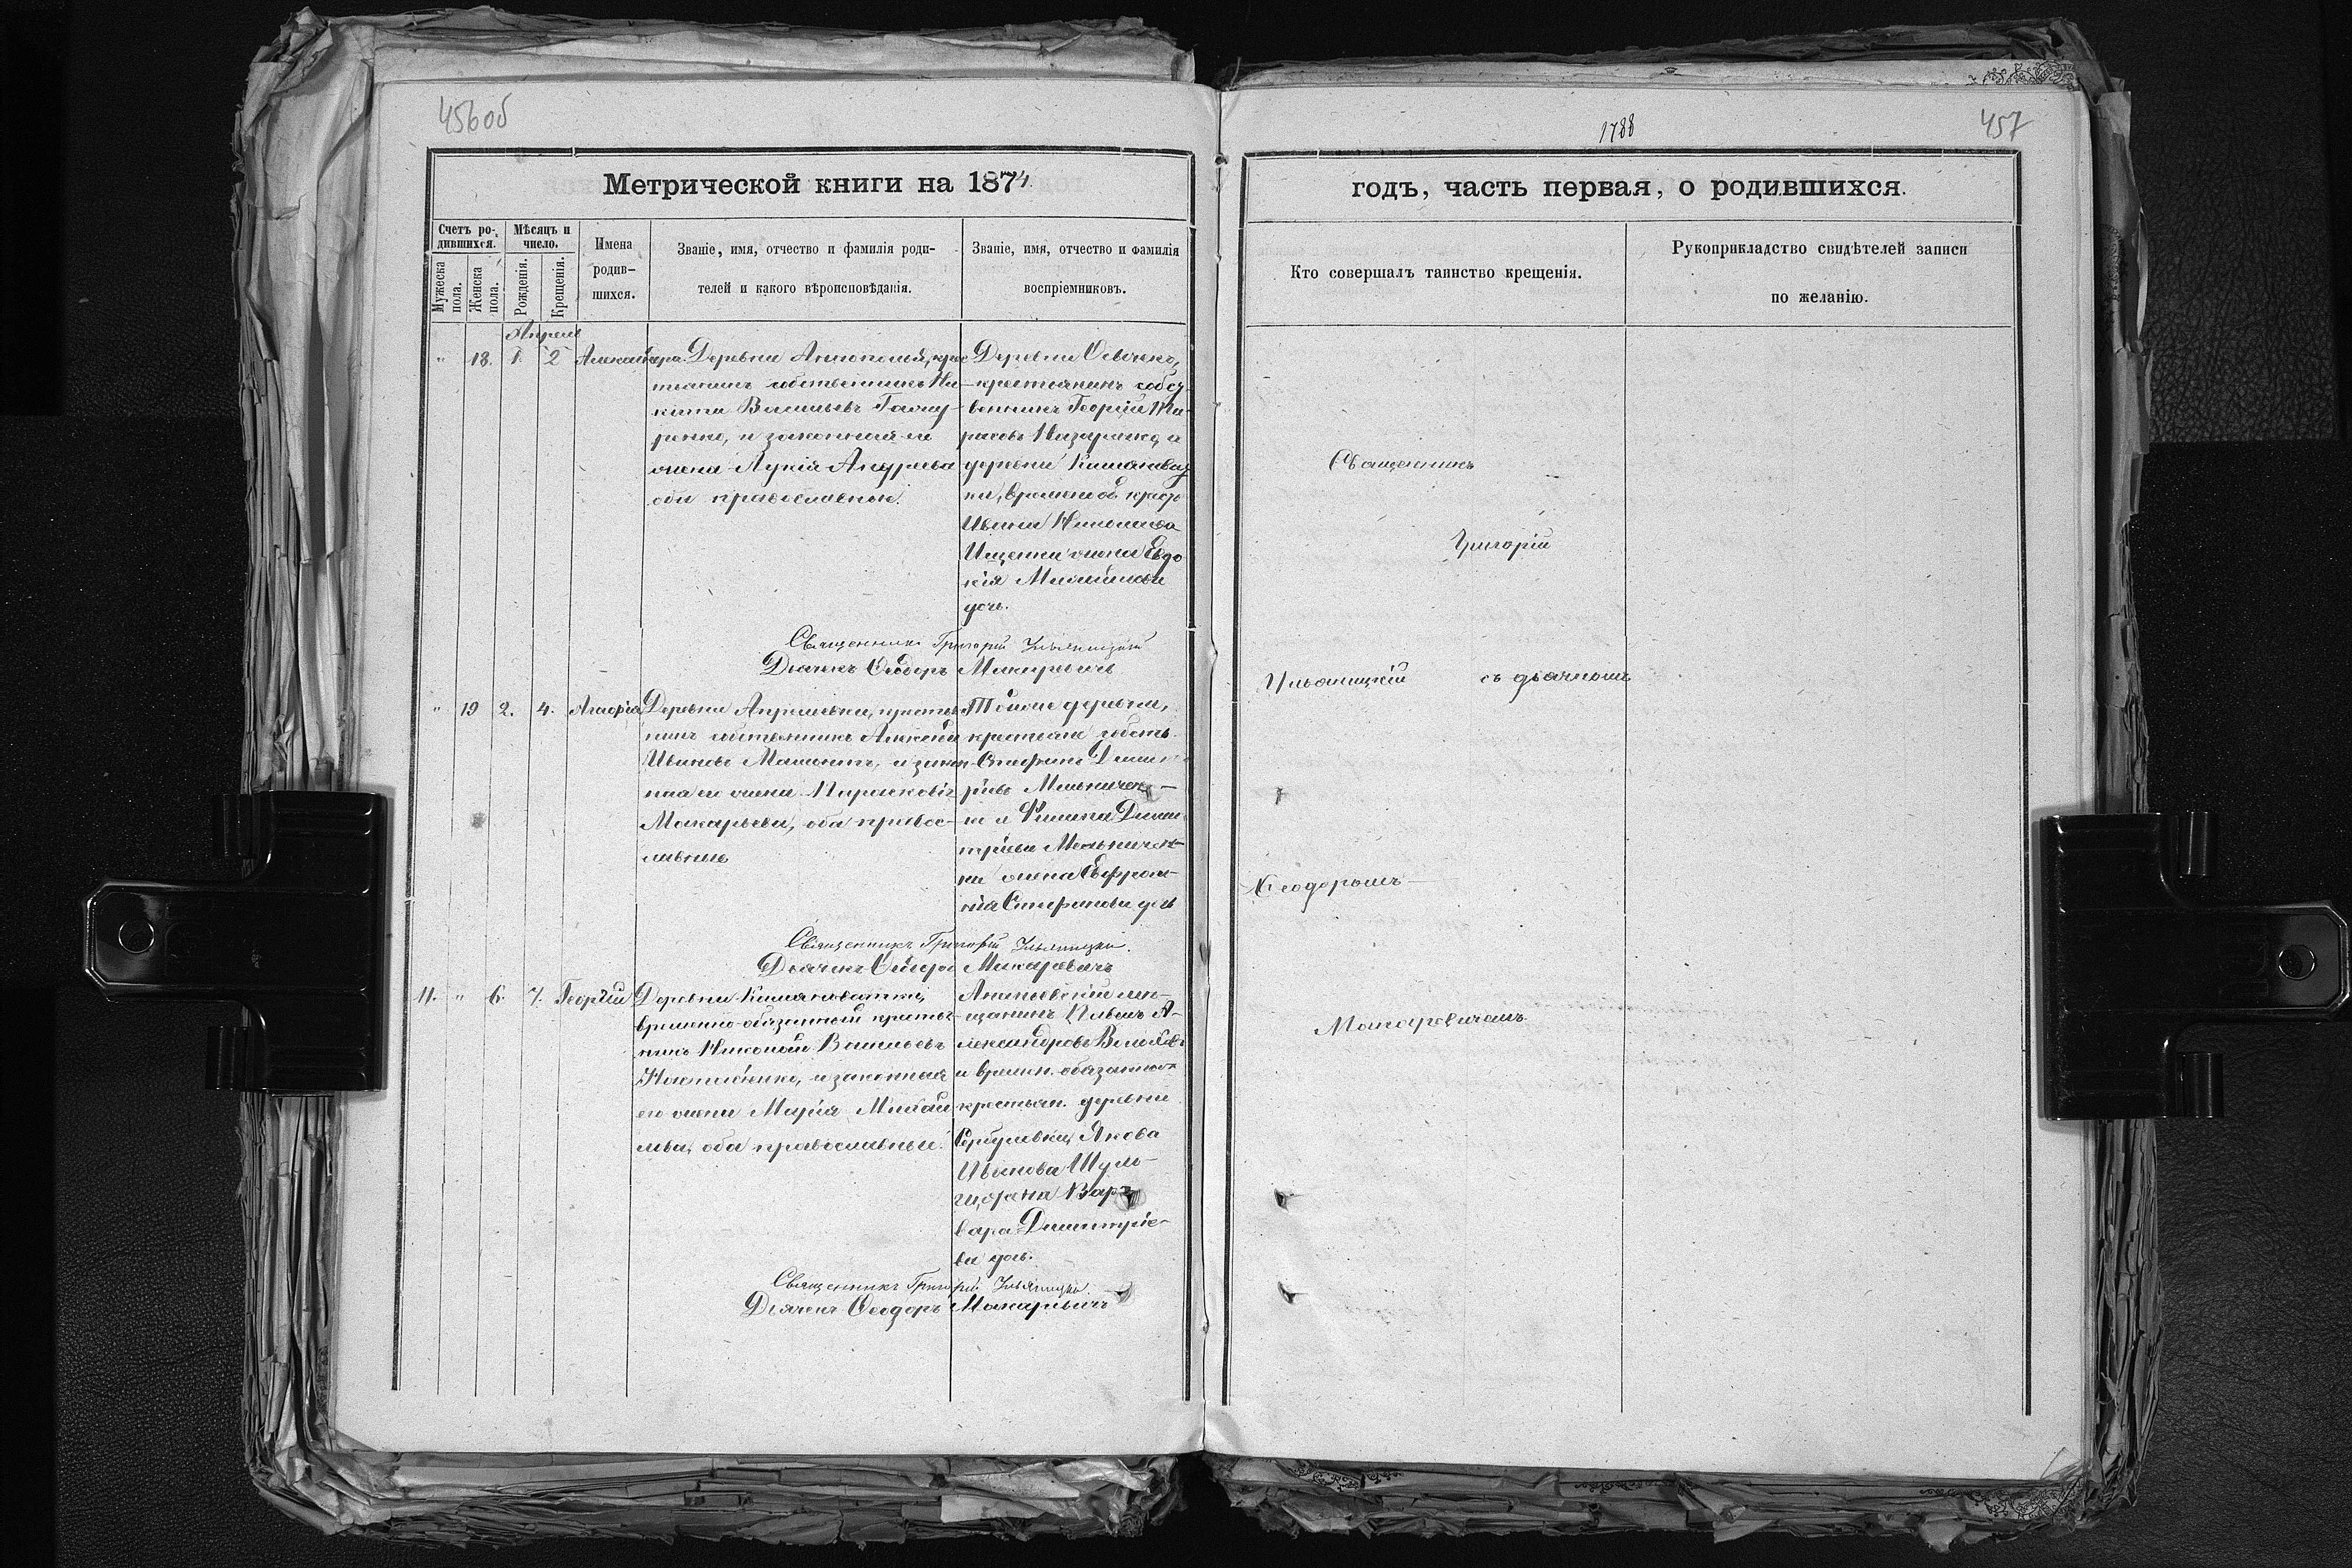 456об
Метрической книги на 1874
Счетъ родившихся.
Мѣсяцъ и число.
Имена родившихся.
Званіе, имя, отчество и фамилія родителей и какого вѣроисповѣданія.
Званіе, имя, отчество и фамилія воспріемниковъ.
Мужеска пола.
Женска пола.
Рожденія.
Крещенія.
Апрель
" 18. 1. 2 Александра
Деревни крес-
тьянинъ собственникъ Ни-
кита Васильевъ
и законная его
жена Лукія Андреева
оба православны.
Деревни
крестьянинъ собст-
венникъ Георгій
а
деревни
Ивана Николаева
Ищенка жена Евдо-
кія
дочь.
Священникъ Григорій Ильяницкій
Дьячекъ Ѳеодоръ Макаревичъ
" 19 2. 4. Агафія
Деревни крестья-
нинъ собственникъ Алексій
Ивановъ и закон-
ная его жена Параскевія
Макарьева, оба правос-
лавные
Тойже деревни,
крестьяне собств.
Стефанъ Димит-
ріевъ Мельничен-
ко и Димит-
ріева Мельничен-
ка жена Евфроси-
нія Стефанова дочь
Священникъ Григорій Ильяницкій.
Дьячекъ Ѳеодоръ Макаревичъ
11. " 6. 7. Георгій
Деревни
временно-обязанный крестья-
нинъ Николай Васильевъ
и законная
его жена Марія Михай-
лова, оба православные.
Ананьевскій мѣ-
щанинъ Павелъ А-
лександровъ
и времен. обязаннаго
крестьян. деревни
Сербуловки, Якова
Иванова Шуль-
ги, жена Вар-
вара Димитріе-
ва дочь.
Священникъ Григорій Ильяницкій.
Дьячекъ Ѳеодоръ Макаревичъ
1788
457
годъ, часть первая, о родившихся.
Кто совершалъ таинство крещенія.
Рукоприкладство свидѣтелей записи по желанію.
Священникъ
Григорій
Ильяницкій съ дьячкомъ
Ѳеодоромъ
Макаревичемъ